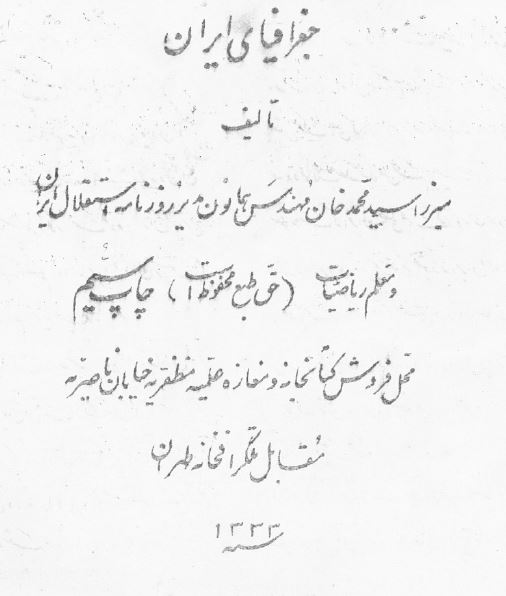 جغرافیای ایران
تألیف
میرزا سید محمد خان مهندس همایون مدیر روزنامه استقلال ایران
و معلم ریاضیات (حق طبع محفوظ است) چاپ سیم
محل فروش کتابخانه و مغازه علمیه مظفریه خیابان ناصریه
مقابل تلگرافخانه طهران
سنه ۱۳۳۳